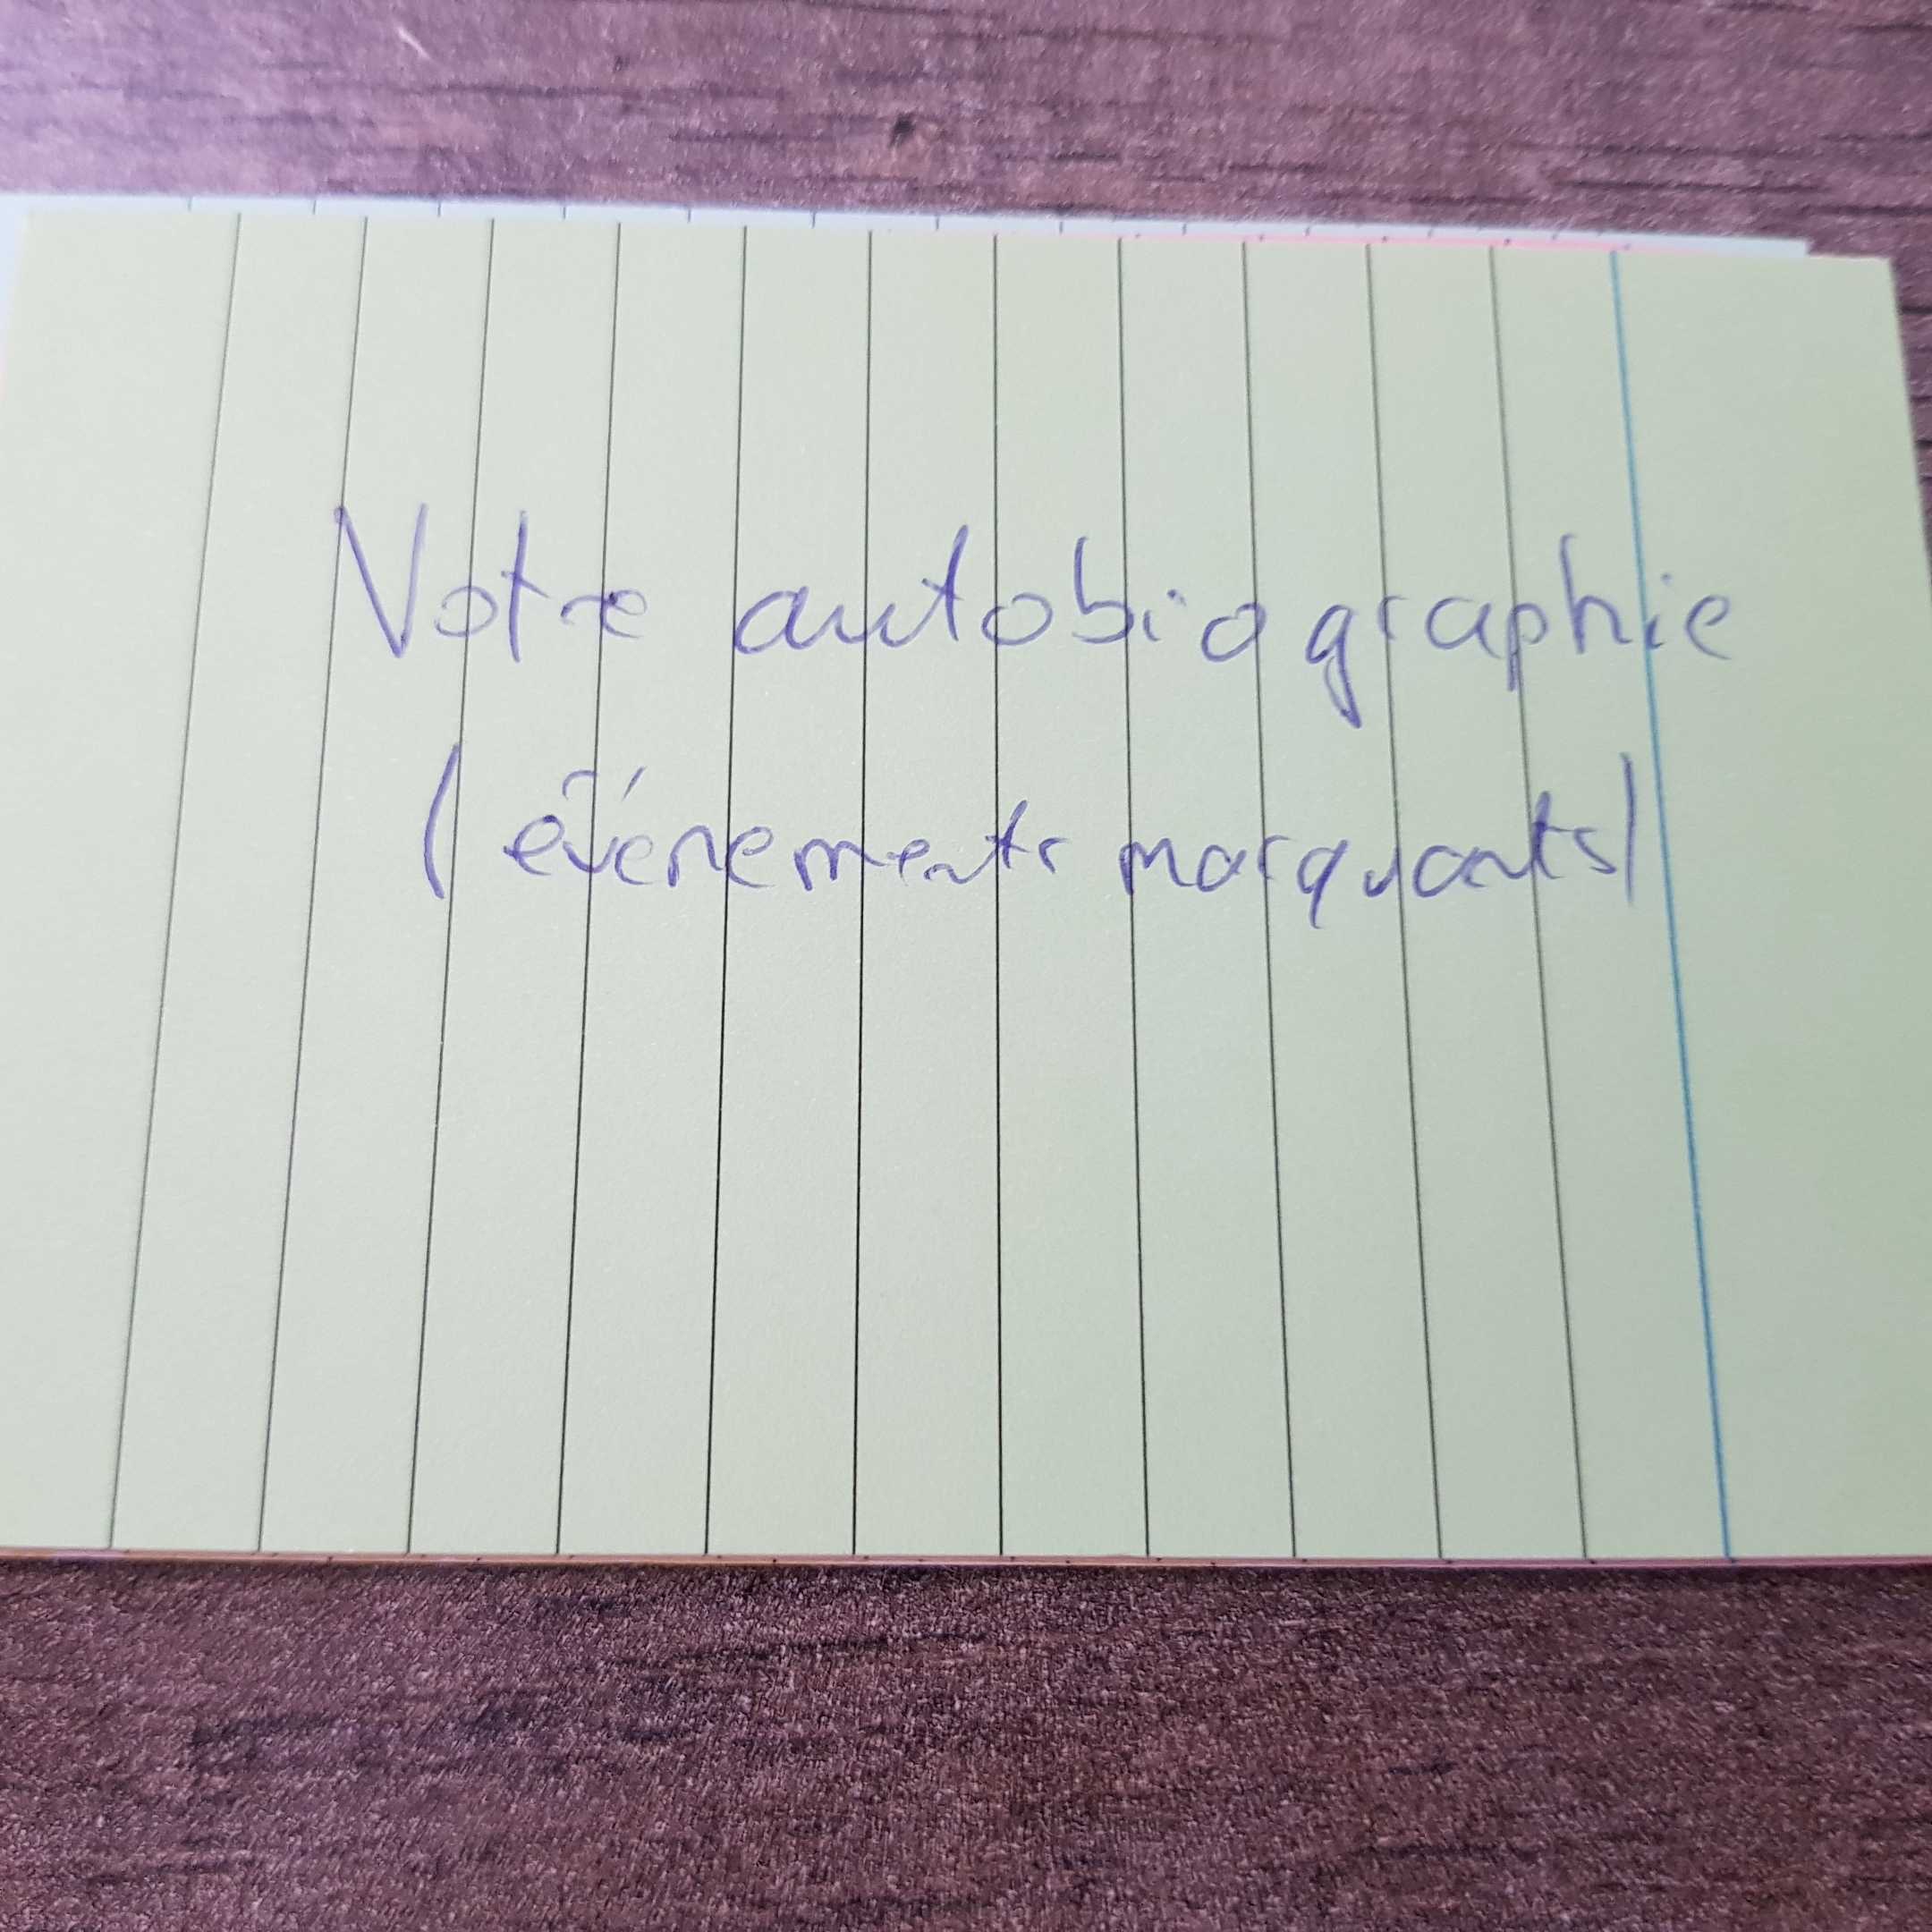 Votre autobiographie
(événements marquants)